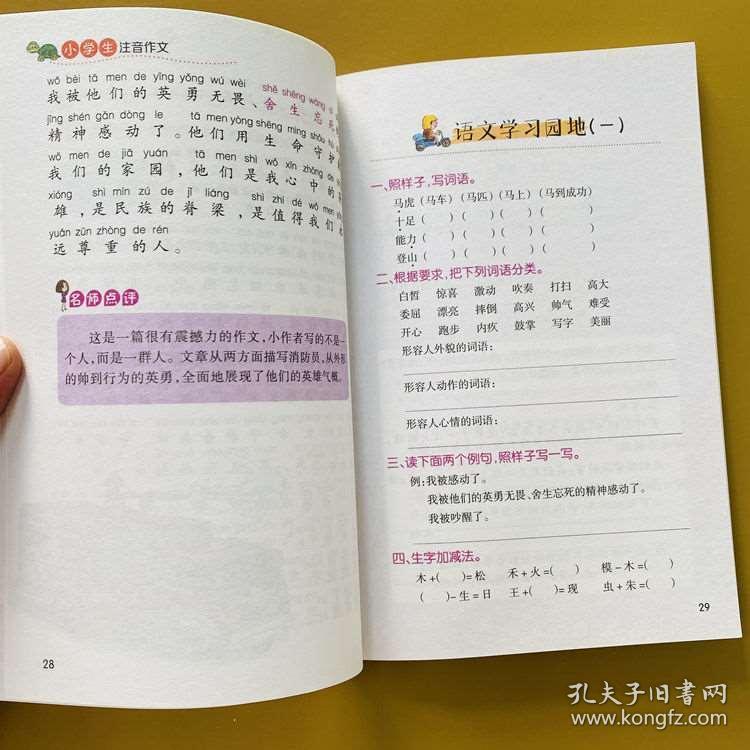 小学生注音作文
wǒ bèi tā men de yīng yǒng wú wèi shě shēng wàng
我被他们的英勇无畏、舍生忘死
jīng shén gǎn dòng le tā men yòng shēng mìng shǒu
精神感动了。他们用生命守护
wǒ men de jiā yuán tā men shì wǒ xīn zhōng de
我们的家园,他们是我心中的
xióng shì mín zú de jǐ liáng shì zhí dé wǒ men
雄,是民族的脊梁,是值得我们
yuǎn zūn zhòng de rén
远尊重的人。
名师点评
这是一篇很有震撼力的作文,小作者写的不是一
个人,而是一群人。文章从两方面描写消防员,从外形
的帅到行为的英勇,全面地展现了他们的英雄气概。
28
语文学习园地(一)
一、照样子,写词语。
马虎(马车)(马匹)(马上)(马到成功)
十足( )( )( )( )
能力( )( )( )( )
登山( )( )( )( )
二、根据要求,把下列词语分类。
白皙 惊喜 激动 吹奏 打扫 高大
委屈 漂亮 摔倒 高兴 帅气 难受
开心 跑步 内疚 鼓掌 写字 美丽
形容人外貌的词语:
形容人动作的词语:
形容人心情的词语:
三、读下面两个例句,照样子写一写。
例:我被感动了。
我被他们的英勇无畏、舍生忘死的精神感动了。
我被吵醒了。
四、生字加减法。
木+( )=松 禾+火=( ) 模-木=( )
( )-生=日 王+( )=现 虫+朱=( )
29
孔夫子旧书网
www.kongfz.com